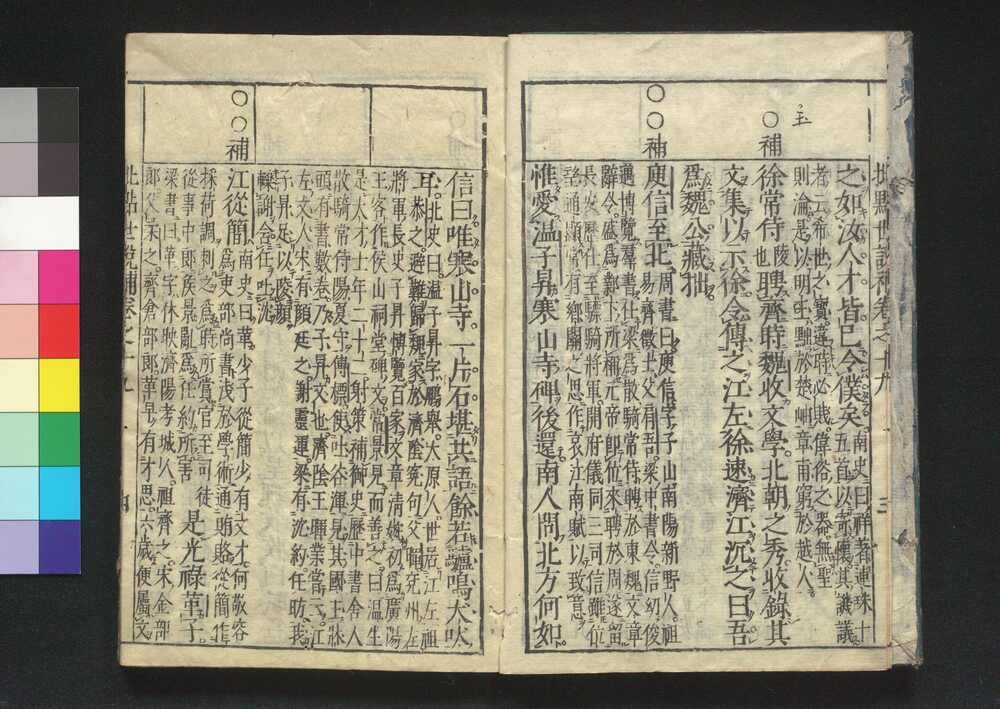 世說補卷之十九
之如汝人才皆已令僕矣
南史曰祥著連珠十
五首以寄懷其譏議
者云希世之寶違時必賤偉俗之器無聖
則淪是以明玉黜於楚岫章甫窮於越人
補
徐常侍
陵也
聘齊時魏收文學北朝之秀收錄其
文集以示徐令傳之江左徐速濟江沉之曰吾
為魏公藏拙
補
庾信至北
周書曰庾信字子山南陽新野人祖
易齊徵士父肩吾梁中書令信幼俊
邁博覽羣書仕梁為散騎常侍聘於東魏文章
辭令盛為鄴下所稱元帝即位來聘於周遂留
長安歷仕至驃騎將軍開府儀同三司信雖位
望通顯常有鄉關之思作哀江南賦以致意
惟愛溫子昇寒山寺碑後還南人問北方何如
信曰唯寒山寺一片石堪共語餘若驢鳴犬吠
耳
北史曰溫子昇字鵬舉太原人世居江左祖
恭之避難歸魏家於濟陰冤句父暉兗州左
將軍長史子昇博覽百家文章清婉初為廣陽
王客作侯山祠堂碑文常景見而善之曰溫生
是大才士年二十二射策補御史歷中書舍人
散騎常侍陽夏守傅標使吐谷渾見其國王牀
頭有書數卷乃子昇文也濟陰王暉業嘗云江
左文人宋有顏延之謝靈運梁有沈約任昉我
子昇足以陵顏
轢謝含任吐沈
補
江從簡
南史曰革少子從簡少有文才何敬容
為吏部尚書淺於學術通賄賂從簡作
採荷調刺之為時所賞官至司徒
從事中郎侯景亂為任約所害
是光祿革子
梁書曰革字休映濟陽考城人祖齊之宋金部
郎父柔之齊倉部郎革早有才思六歲便屬文
世說補卷之十九